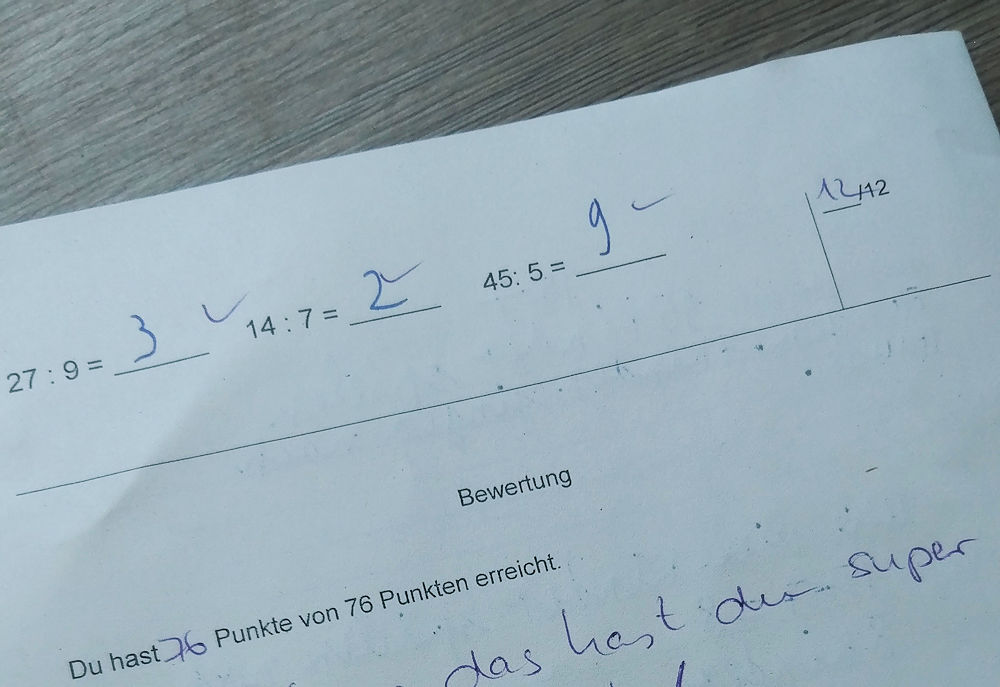 27 : 9 = 3 14 : 7 = 2 45: 5 = 9 12/12
Bewertung
Du hast 76 Punkte von 76 Punkten erreicht.
das hast du super